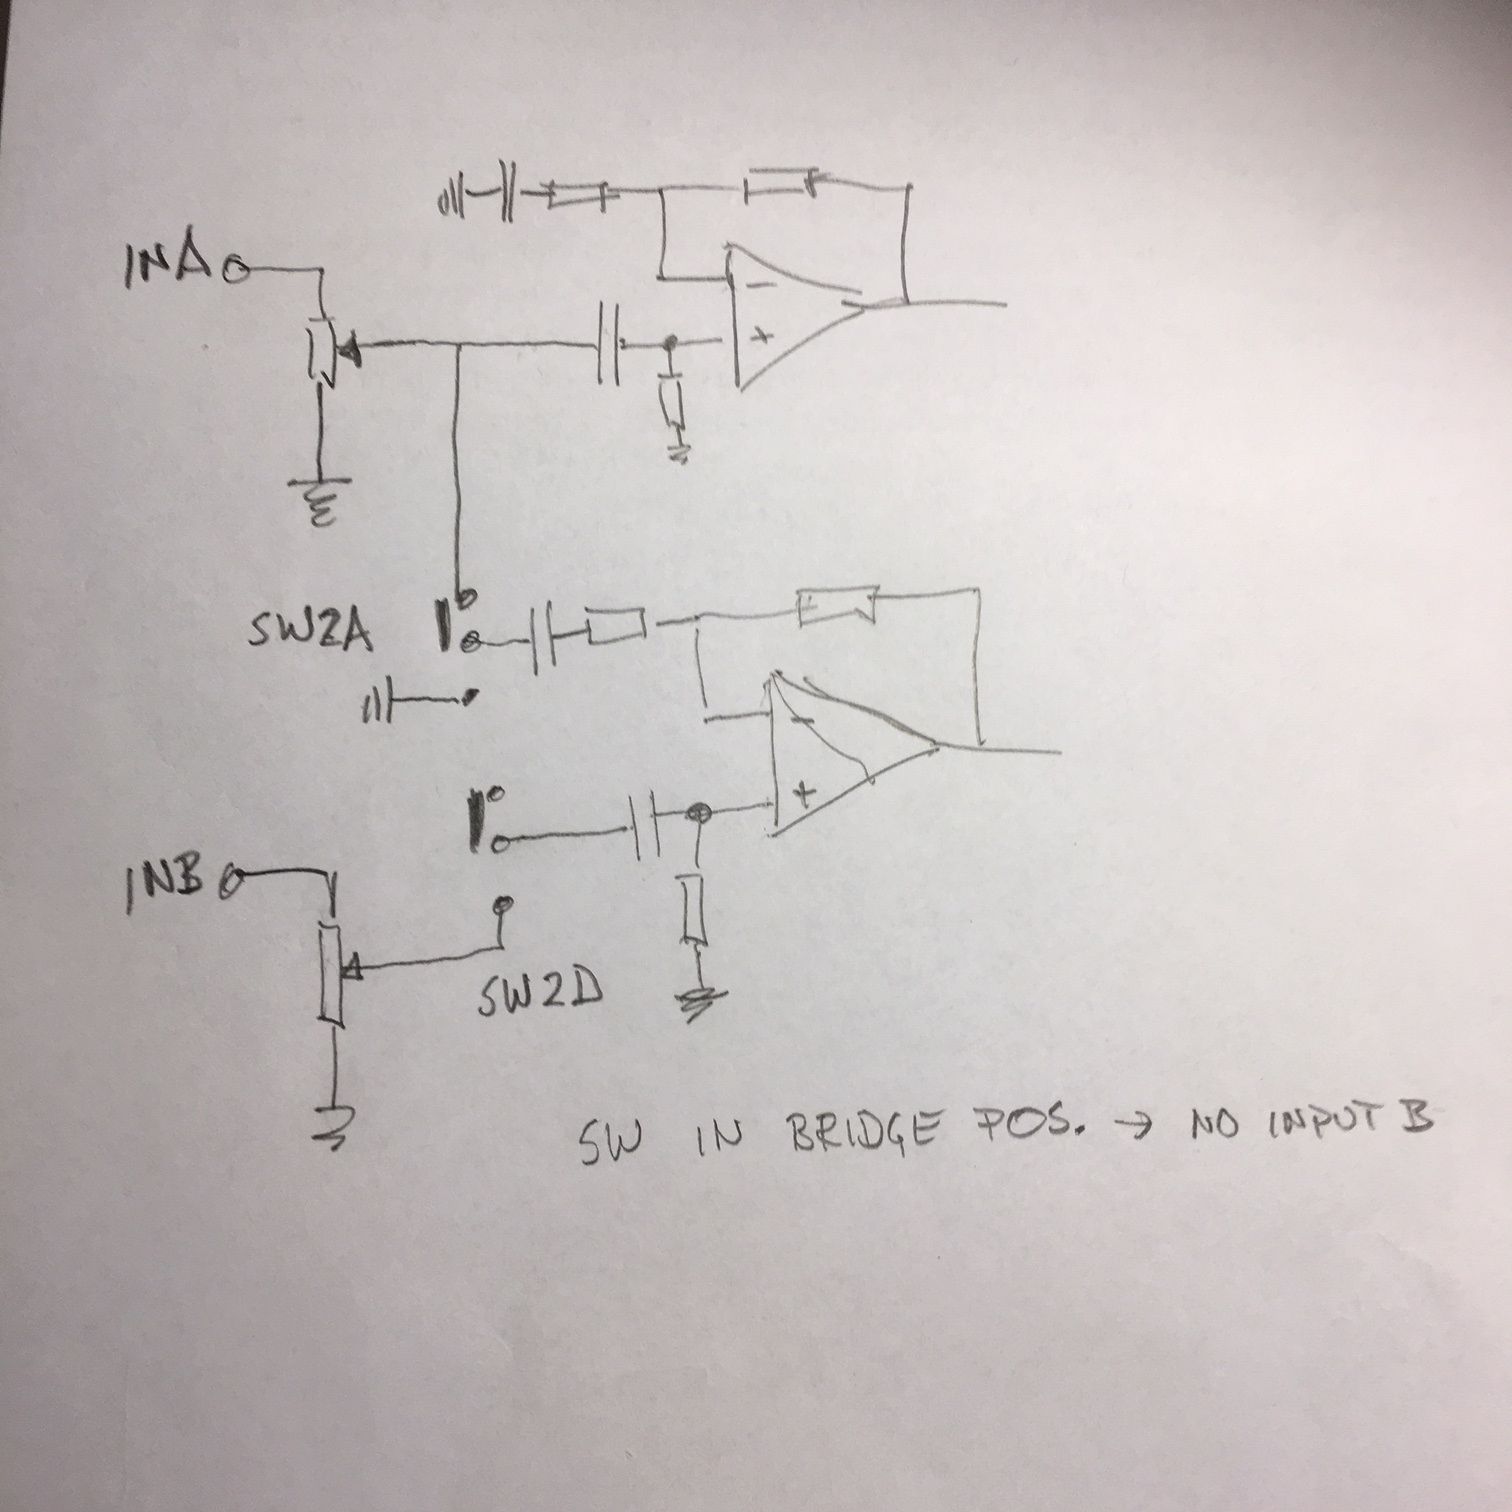 INA
-
+
SW2A
-
+
INB
SW2D
SW IN BRIDGE POS. → NO INPUT B